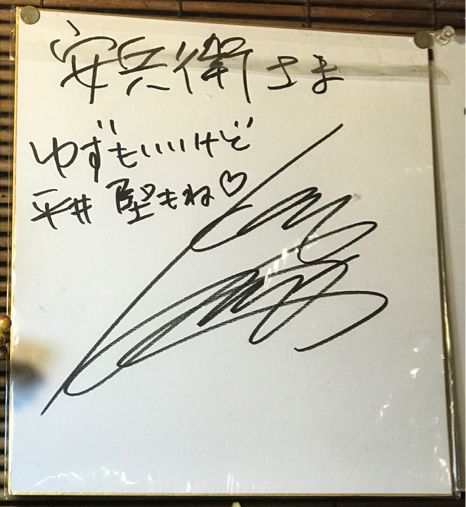 安兵衛さま
ゆずもいいけど
平井堅もね♡